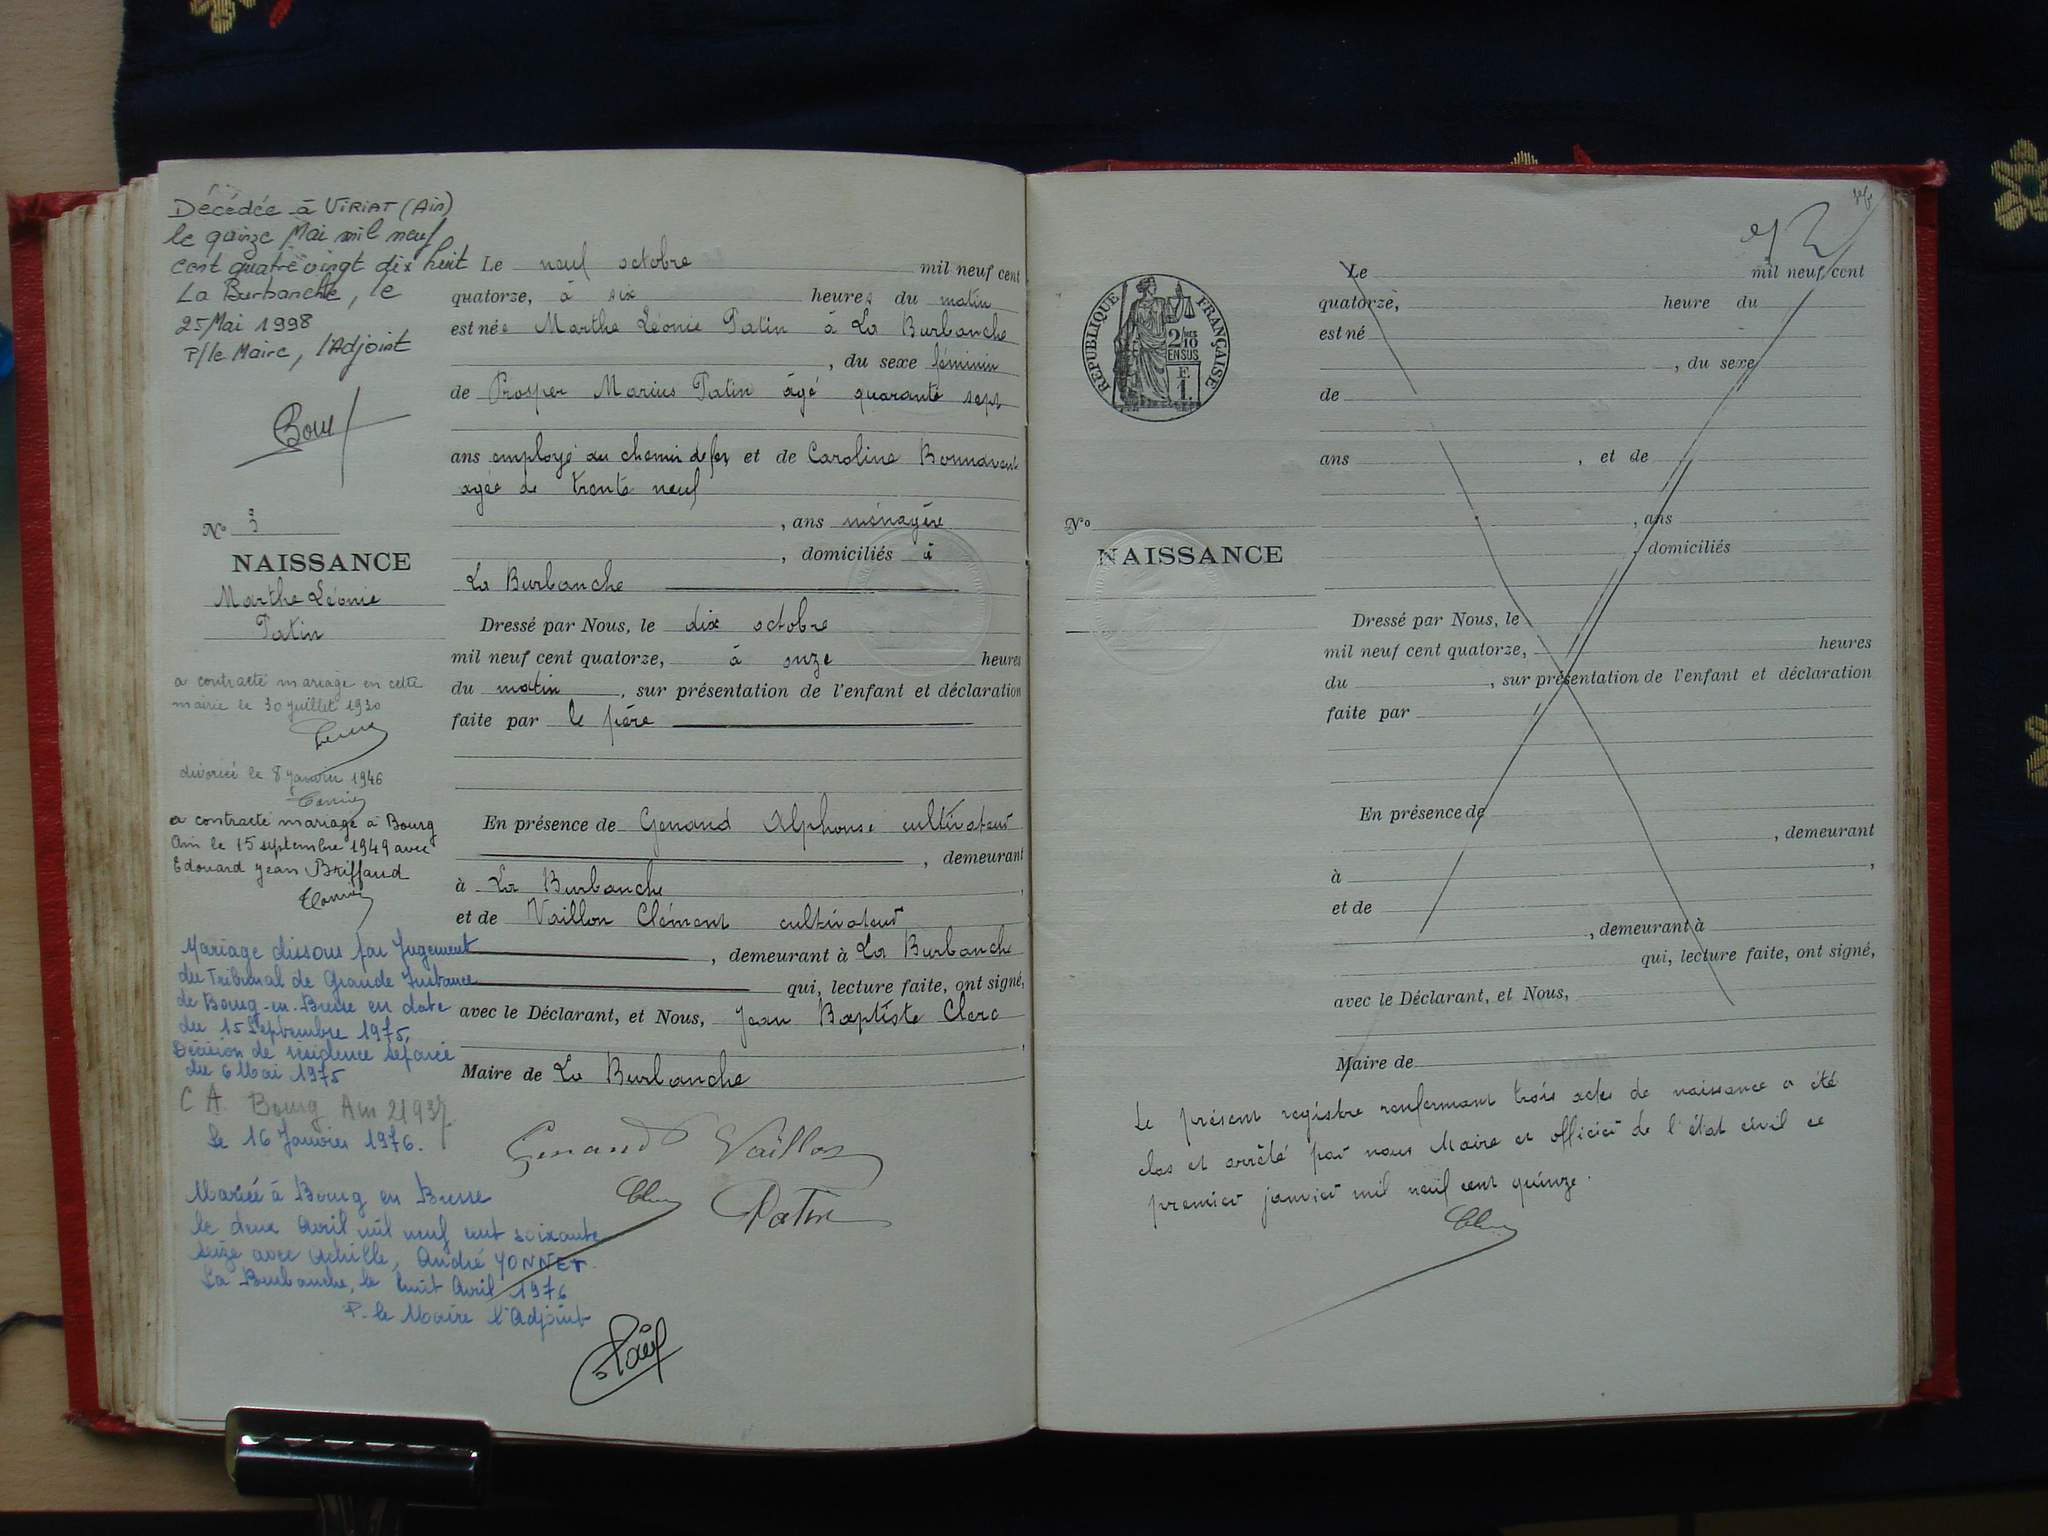 Décédée à VIRIAT (Ain)
le quinze Mai mil neuf
cent quatre vingt dix huit
La Burbanche, le
25 Mai 1998
P/le Maire, l'Adjoint
Nº 3
NAISSANCE
Marthe Léonie
Patin
a contracté mariage en cette
mairie le 30 juillet 1930
divorcée le 8 janvier 1946
a contracté mariage à Bourg
Ain le 15 septembre 1949 avec
Edouard Jean Briffaud
Mariage dissous par Jugement
du Tribunal de Grande Instance
de Bourg-en-Bresse en date
du 15 Septembre 1975,
Décision de résidence séparée
du 6 Mai 1975
C A. Bourg Ain
le 16 Janvier 1976.
Mariée à Bourg en Bresse
le deux Avril mil neuf cent soixante
seize avec Achille, André YONNET.
La Burbanche, le huit Avril 1976
P. le Maire l'Adjoint
Le neuf octobre mil neuf cent
quatorze, à six heures du matin
est née Marthe Léonie Patin à La Burbanche
, du sexe féminin
de Prosper Marius Patin âgé quarante sept
ans employé au chemin de fer, et de Caroline
agée de trente neuf
, ans ménagère
, domiciliés à
La Burbanche
Dressé par Nous, le dix octobre
mil neuf cent quatorze, à onze heures
du matin, sur présentation de l'enfant et déclaration
faite par le père
En présence de Genand Alphonse cultivateur
, demeurant
à La Burbanche,
et de Vaillon Clément cultivateur
, demeurant à La Burbanche
qui, lecture faite, ont signé,
avec le Déclarant, et Nous, Jean Baptiste Clerc
,
Maire de La Burbanche
Genand Vaillon
Patin
RÉPUBLIQUE FRANÇAISE
2/10
EN SUS
E.
1.
Nº
NAISSANCE
Le mil neuf cent
quatorze, heure du
est né
, du sexe
de
ans , et de
, ans
, domiciliés
Dressé par Nous, le
mil neuf cent quatorze, heures
du , sur présentation de l'enfant et déclaration
faite par
En présence de
, demeurant
à ,
et de
, demeurant à
qui, lecture faite, ont signé,
avec le Déclarant, et Nous,
Maire de
Le présent registre renfermant trois actes de naissance a été
clos et arrêté par nous Maire et officier de l'état civil ce
premier janvier mil neuf cent quinze.